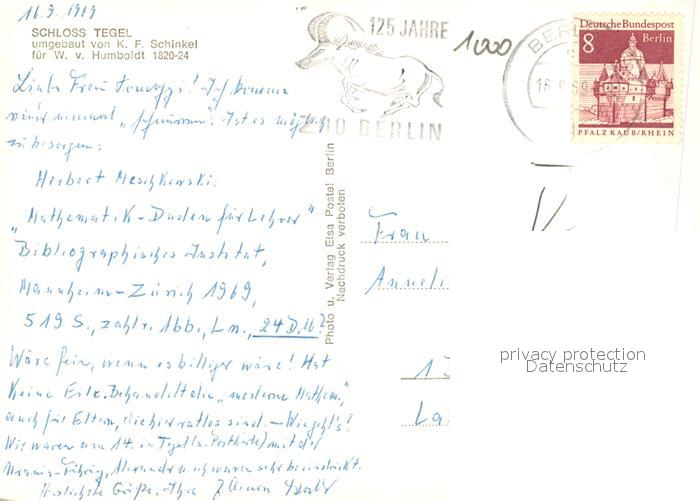 16.9.1969
SCHLOSS TEGEL
umgebaut von K. F. Schinkel
für W. v. Humboldt 1820-24
125 JAHRE
ZOO BERLIN
1000
BERLIN
Deutsche Bundespost
8 Berlin
PFALZ KAUB/RHEIN
Liebe Frau! Ich komme
Ist es möglich
zu besorgen:
Herbert Meschkowski:
"Mathematik-Duden für Lehrer"
Bibliographisches Institut,
Mannheim-Zürich 1969,
519 S., zahlr. Abb., Ln., 24 D.M.?
Wäre fein, wenn es billiger wäre! Hat
keine Eile. Behandelt die "moderne Mathem.",
auch für Eltern, die hier ratlos sind. - Wie geht's?
Wir waren am 14. in Tegel (s. Postkarte) mit der
Urania-Führg, Alexandra u. ich waren sehr beeindruckt.
Herzlichste Grüße, Ihre
Photo u. Verlag Elsa Postel Berlin
Nachdruck verboten
Frau
Anneli
privacy protection
Datenschutz